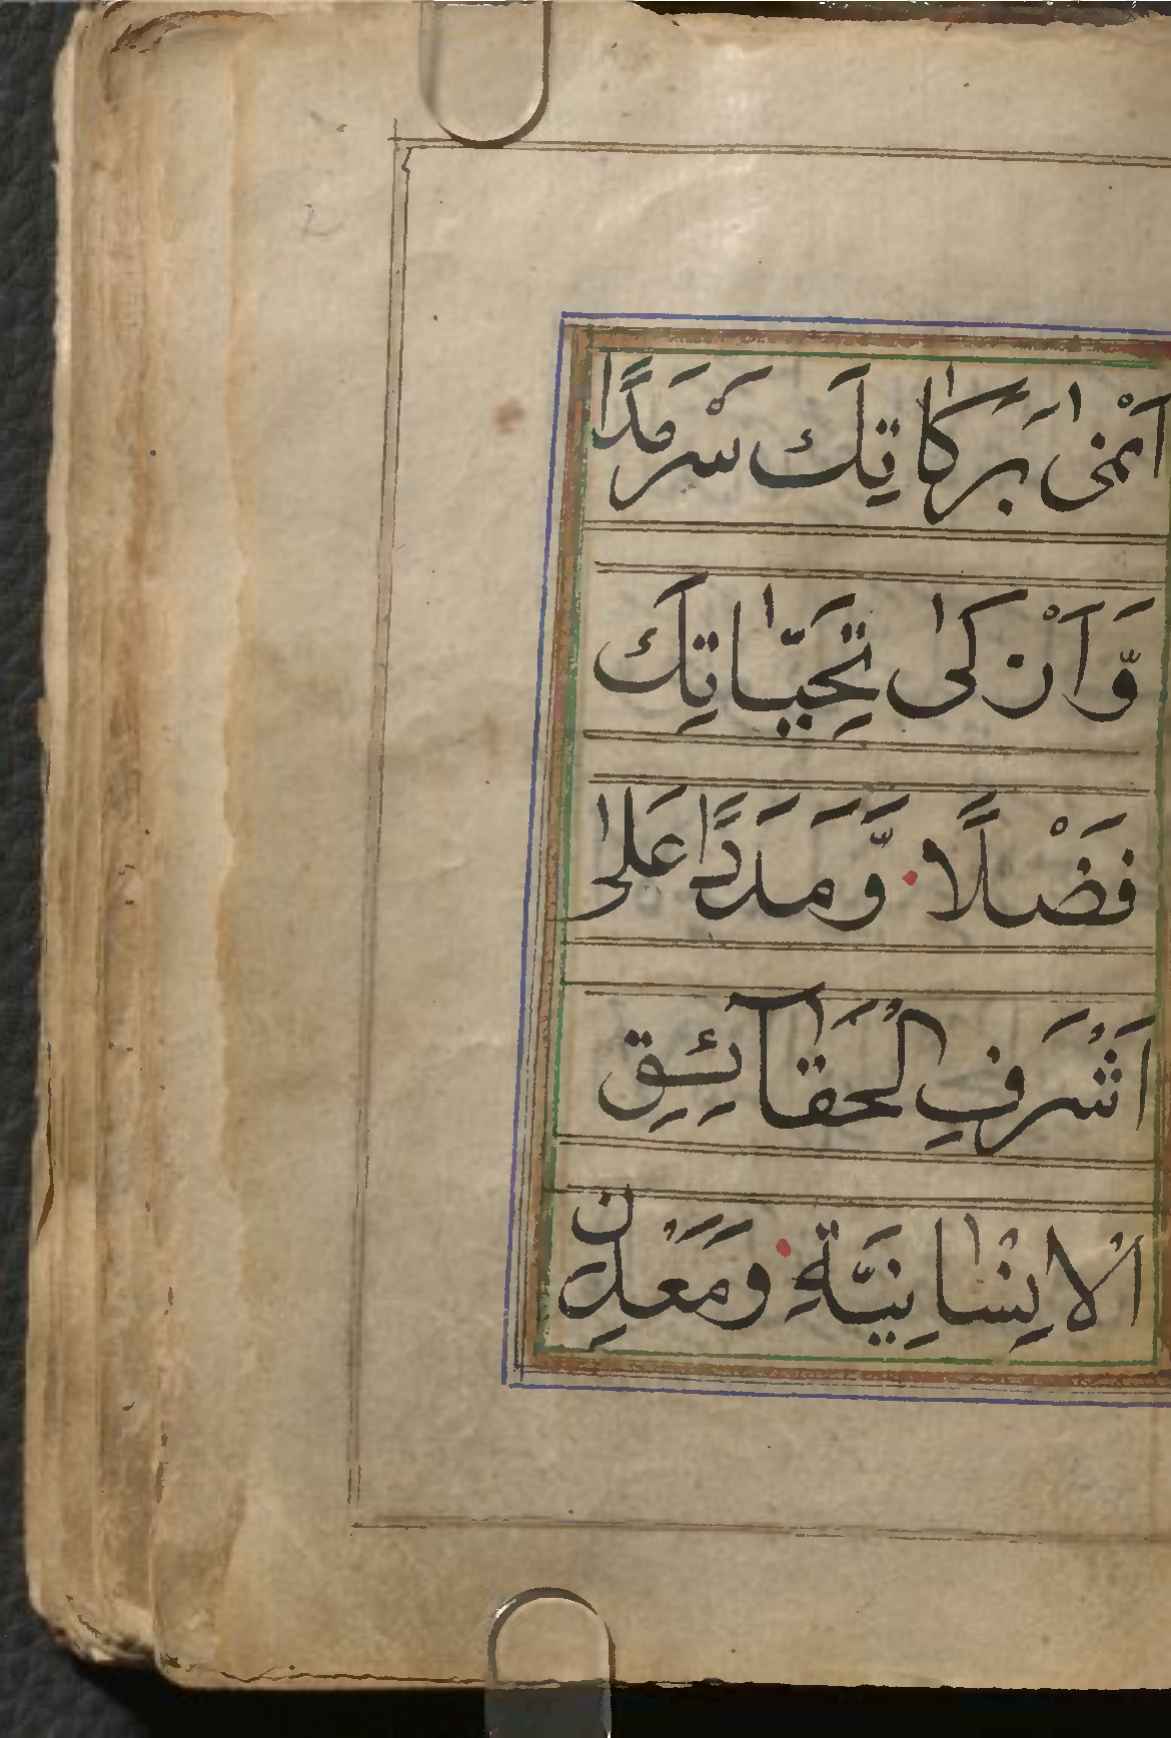 اَنْمٰى بَرَكَاتِكَ سَرْمَدًا
وَّاَزْكٰى تَحِيَّاتِكَ
فَضْلًا وَّمَدَدًا عَلٰى
اَشْرَفِ الْحَقَآئِقِ
الْاِنْسَانِيَّةِ وَمَعْدِنِ